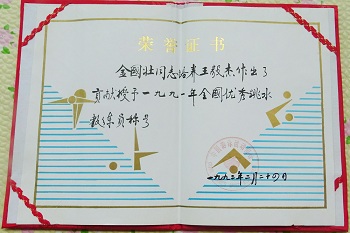 荣誉证书
金国壮同志培养王毅杰作出了
贡献授予一九九一年全国优秀跳水
教练员称号
一九九二年二月二十四日